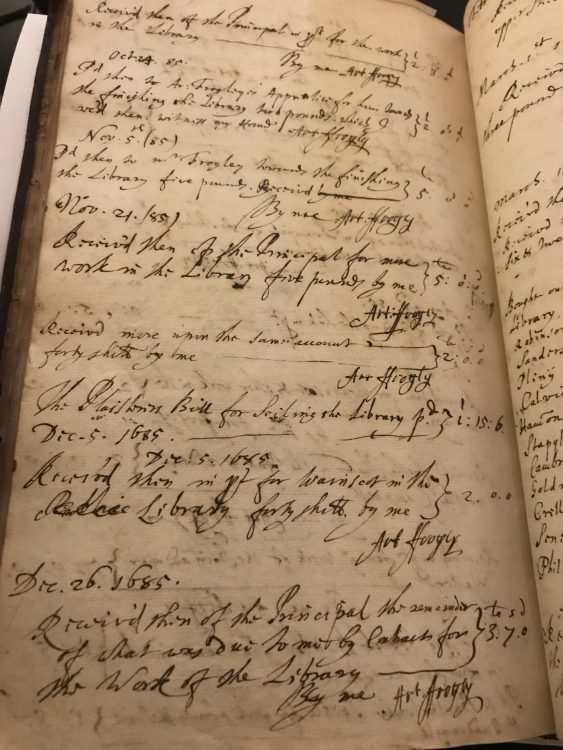 Received then of the Principal in pt for the work
in the Library
By me Art ffrogly
Oct. 24. 85.
Pd then to Mr Frogley's Apprentice for him towards
the finishing the Library two pounds which I
recd then witness my Hand Art ffrogly
Nov. 5. (85)
Pd then to Mr Frogley towards the finishing
the Library five pounds. Received by me 5
By me Art ffrogly
Nov. 21. (85)
Received then of the Principal for more
work in the Library five pounds by me 5: 0: 0
Art ffrogly
Received more upon the same account
forty shill by me 2: 0: 0
Art ffrogly
The Plaisterers Bill for Seiling the Library pd 1: 15: 6
Dec. 5. 1685.
Dec: 5. 1685
Received then in pt for wainscot in the
Library forty shill, by me 2. 0. 0
Art ffrogly
Dec. 26. 1685.
Received then of the Principal the remainder
of what was due to me by Contract for 3. 7. 0
the Work of the Library
By me Art ffrogly
March. 1st
Received
three pound
March.
Received the
Received
Bought
Library
Robinson
Sanders
Pliny
Calvin
Hamon
Stapl
Cambr
Gold
Sene
Phil